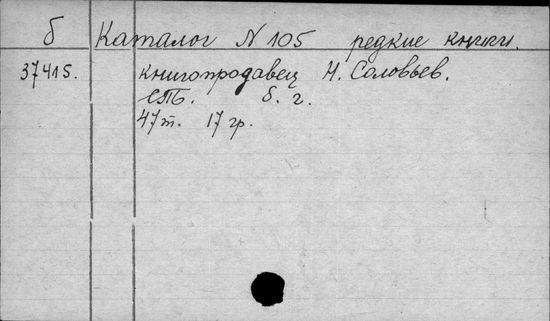 б Каталог N 105 редкие книги.
37415. книгопродавец Н. Соловьев.
СПб. б. г.
47т. 17 гр.